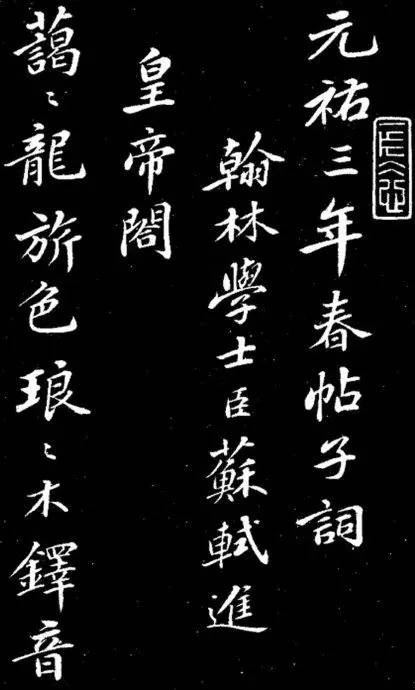 元祐三年春帖子詞
翰林學士臣蘇軾進
皇帝閣
藹〻龍旂色琅〻木鐸音